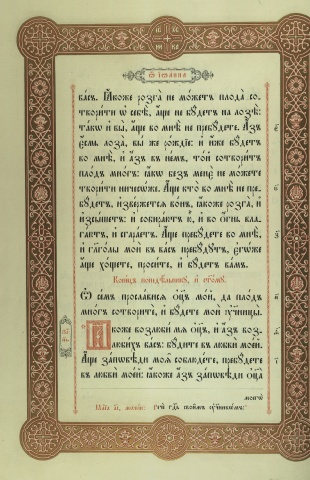 Ѿ іѡанна
васъ. Ꙗкоже розга не можетъ плода со-
творити ѡ себѣ, аще не будетъ на лозѣ:
такѡ и вы, аще во мнѣ не пребудете. Азъ
есмь лоза, вы же рождїе: и иже будетъ
во мнѣ, и азъ въ немъ, той сотворитъ
плодъ многъ: ꙗкѡ безъ мене не можете
творити ничесѡже. Аще кто во мнѣ не пре-
будетъ, извержется вонъ, ꙗкоже розга, и
изсышетъ: и собираютъ ю, и во огнь вла-
гаютъ, и сгараетъ. Аще пребудете во мнѣ,
и глаголы мои въ васъ пребудутъ, егѡже
аще хощете, просите, и будетъ вамъ.
Конецъ понедѣльнику, и
Ѡ семъ прославися оц҃ъ мой, да плодъ
многъ сотворите, и будете мои ученицы.
Ꙗкоже возлюби мя оц҃ъ, и азъ воз-
любихъ васъ: будите въ любви моей.
Аще заповѣди моя соблюдете, пребудете
въ любви моей: ꙗкоже азъ заповѣди оц҃а
моегѡ
рече гд҃ь своимъ ученикѡмъ: